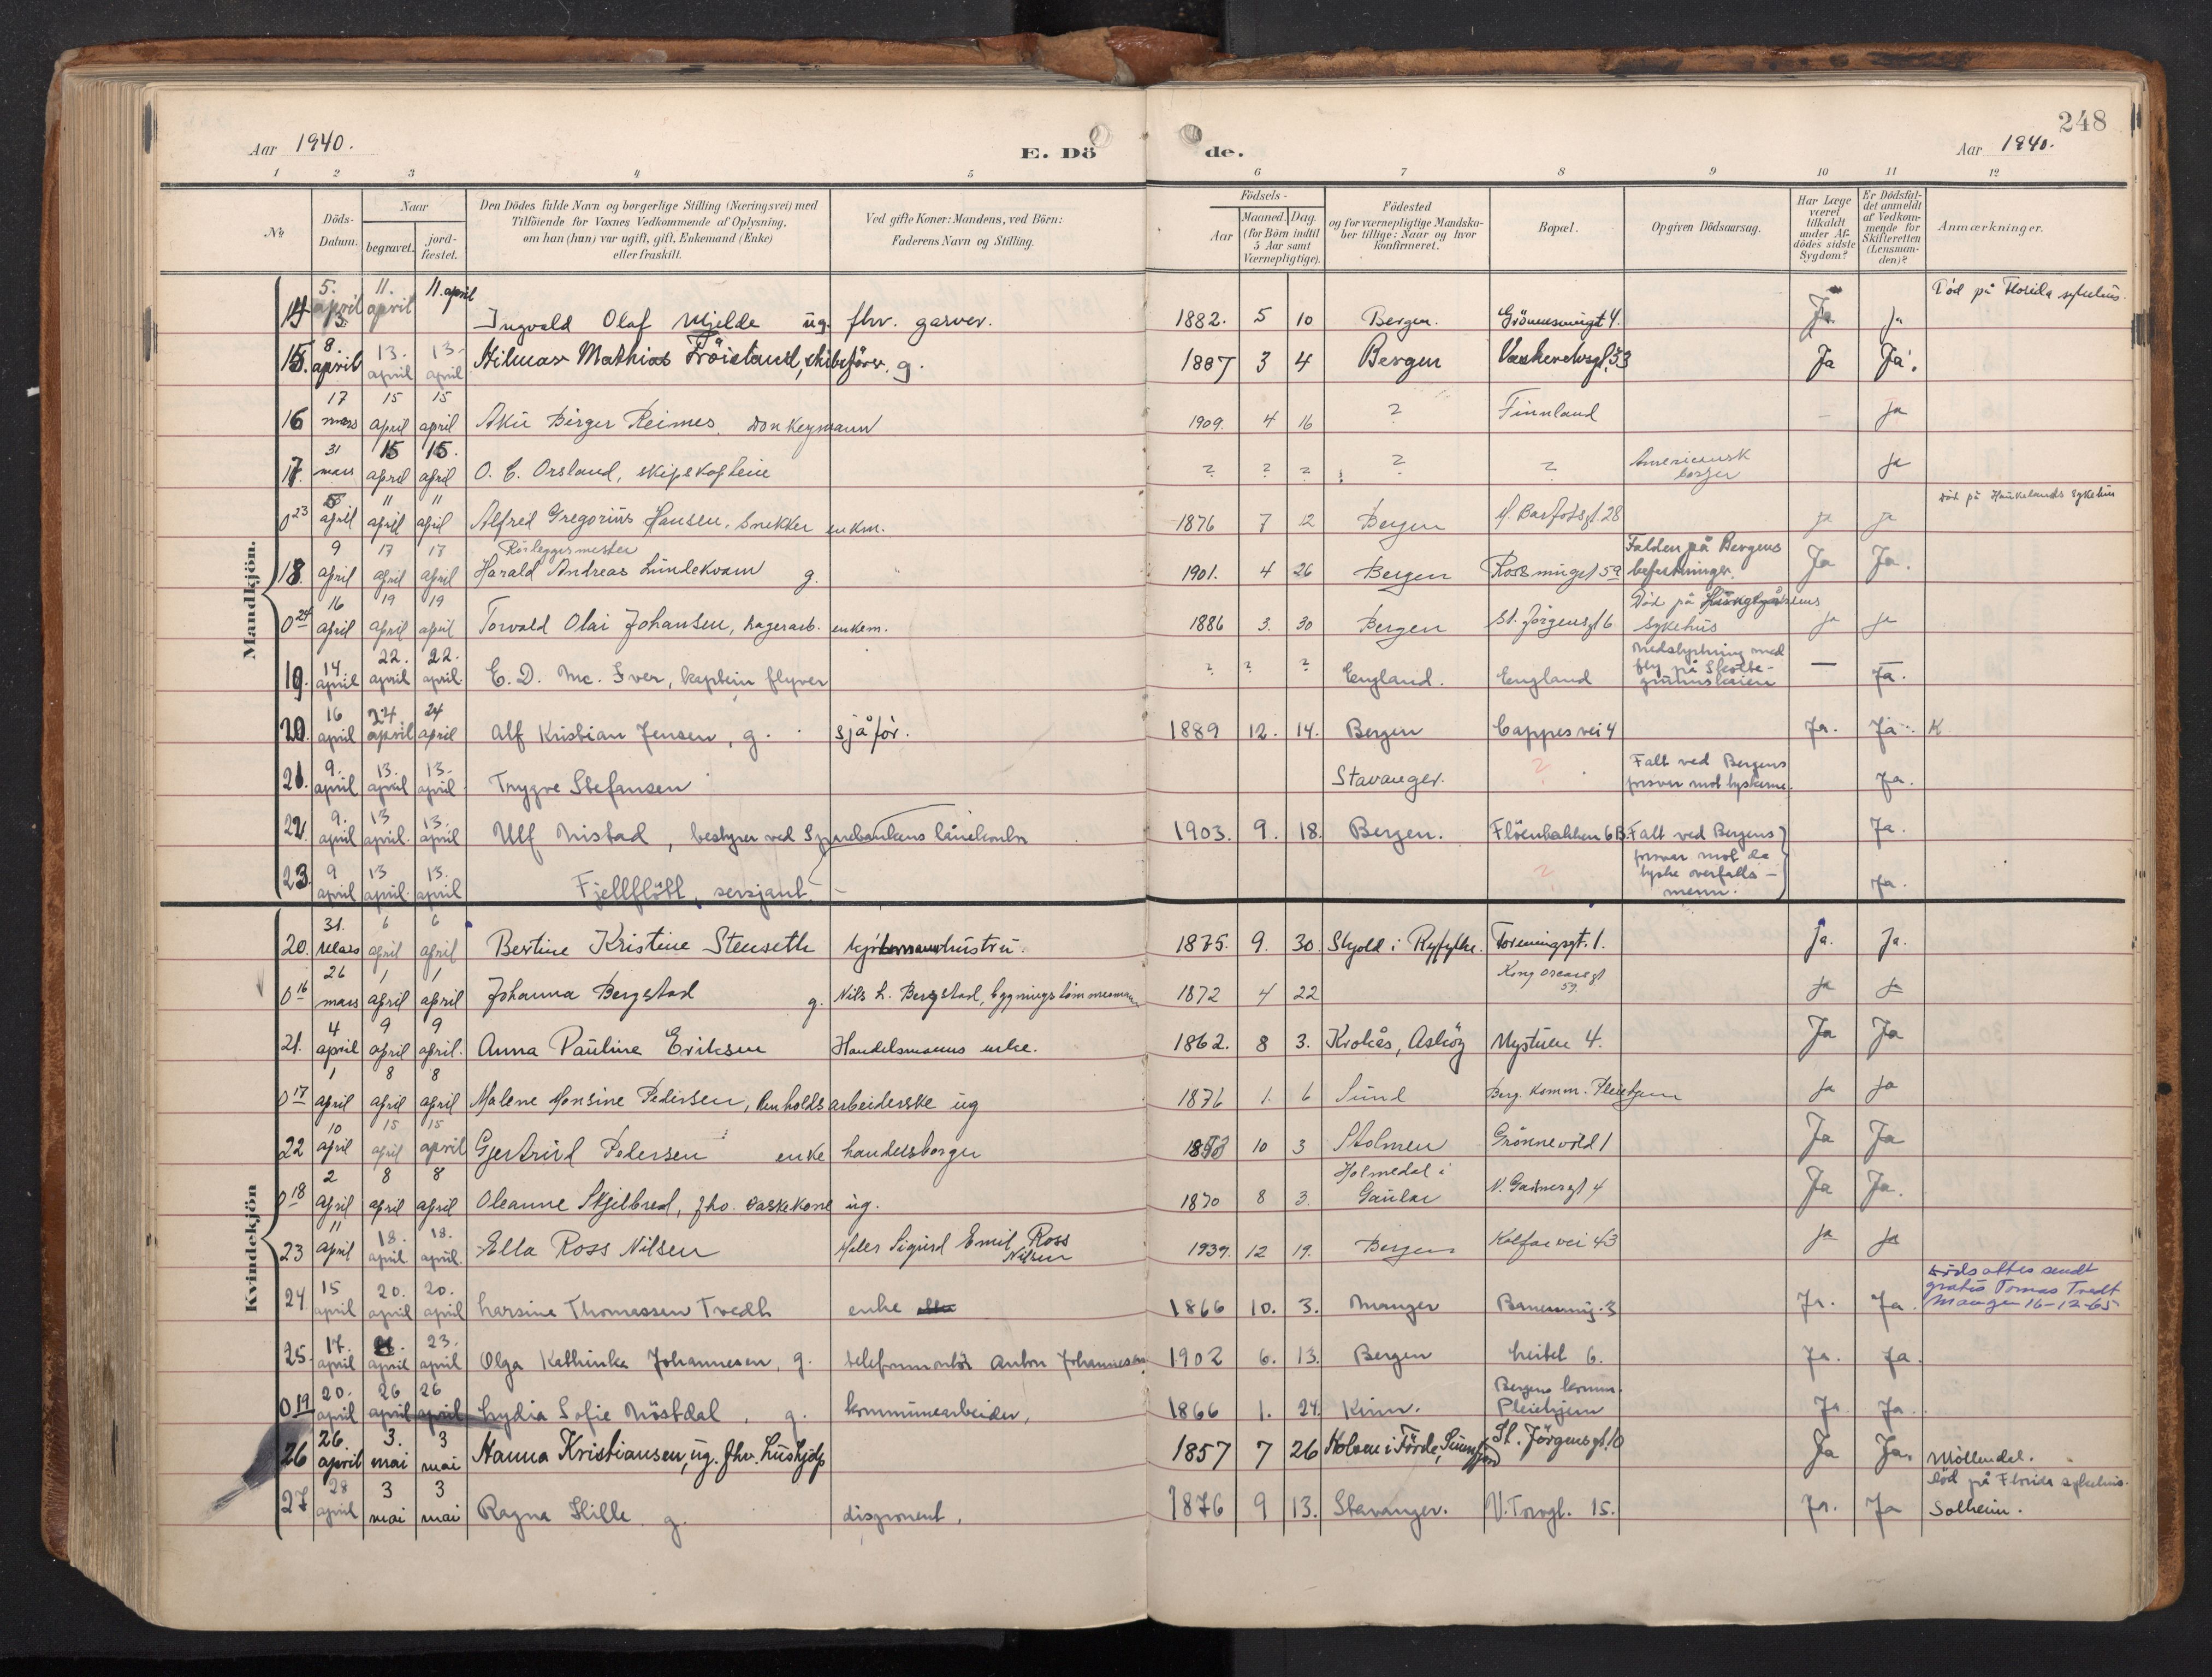 248
Aar 1940.
E. Dö de.
Aar 1940.
1 2 3 4 5 6 7 8 9 10 11 12
No
Döds-
Datum.
Naar
begravet.
jord-
fæstet.
Den Dödes fulde Navn og borgerlige Stilling (Næringsvei) med
Tilföiende for Voxnes Vedkommende af Oplysning,
om han (hun) var ugift, gift, Enkemand (Enke)
eller fraskilt.
Ved gifte Koner: Mandens, ved Börn:
Faderens Navn og Stilling.
Födsels-
Aar
Maaned. Dag.
(for Börn indtil
5 Aar samt
Værnepligtige).
Födested
og for værnepligtige Mandska-
ber tillige: Naar og hvor
konfirmeret.
Bopæl.
Opgiven Dödsaarsag.
Har Læge
været
tilkaldt
under Af-
dödes sidste
Sygdom?
Er Dödsfal-
det anmeldt
af Vedkom-
mende for
Skifteretten
(Lensman-
den)?
Anmærkninger.
Mandkjön.
14 5. april 11. april 11. april Ingvald Olaf Mjelde ug. fhv. garver. 1882. 5 10 Bergen. Ja Død på Florida sykehus.
15. 8. april 13. april 13. april Hilmar Mathias Fröistand, skibsförer. g. 1887 3 4 Bergen Ja Ja.
16 17 mars 15 april 15 april Aku Birger Reimes. Donkeymann 1909. 4 16 ? Finnland — Ja
17. 31 mars 15 april 15. april O. C. Orsland, skipskaptein ? ? ? ? ? Americansk borger Ja
0 23 april 11 april 11 april Alfred Gregorius Hansen, Snekker enkm. 1876 7 12 Bergen M. Barfotsgt. 28 Ja Ja Død på Haukelands sykehus
18. 9 april 17 april 17 april Rörleggermester Harald Andreas Lundekvam g. 1901. 4 26 Bergen Falden på Bergens befestninger. Ja Ja.
0 24 16 april 19 april 19 april Torvald Olai Johansen, Lagerarb. enkem. 1886 3. 30 Bergen St. Jörgensgt 6 Død på sykehus Ja Ja
19. 14. april 22. april 22. april. E. D. Mc. Iver, kaptein flyver ? ? ? England. England Nedstyrtning med fly på — Ja.
20. 16 april 24 april 24 april Alf Kristian Jensen, g. sjåför. 1889 12. 14. Bergen Cappes vei 4 Ja. Ja. K
21. 9. april 13. april 13. april Trygve Stefansen Stavanger. ? Falt ved Bergens forsvar mot tyskerne. Ja.
22. 9. april 13 april. 13. april Ulf Nistad, bestyrer ved Sparebankens lånekontor 1903. 9. 18. Bergen. Flöenbakken 6B. Falt ved Bergens forsvar mot de tyske overfalls- menn. Ja.
23. 9 april 13 april. 13. april Fjellflött, sersjant. — ? Ja.
Kvindekjön
20. 31. Mars 6 april 6 april Bertine Kristine Stenseth 1875. 9. 30. Skjold i Ryfylke. Foreningsgt. 1. Ja. Ja.
0 16 26 mars 1 april 1 april Johanna Bergstad g. Nils L. Bergstad, bygningstömmermann 1872 4 22 Kong Oscarsgt 59. Ja Ja
21. 4 april 9 april 9 april. Anna Pauline Eriksen Handelsmanns enke. 1862. 8 3. Krokås, Asköy Nystuen 4. Ja Ja
0 17 1 april 8 april 8 april Malene Monsine Pedersen, Renholdsarbeiderske ug 1876 1. 6 Sund Berg. Komm. Pleiehjem Ja Ja
22 10 april 15 april 15 april Gjertrud Pedersen enke handelsborger 10 3 Stolmen Ja Ja
0 18 2 april 8 april 8 april Oleanne Skjelbred, fhv. vaskekone ug. 1870 8 3. Holmedal i Gaular N. Gartnergt 4 Ja Ja.
23 11 april 18. april 18. april. Ella Ross Nilsen Maler Sigurd Emil Ross Nilsen 1939. 12 19. Bergen Kalfarvei 43 Ja Ja
24. 15 april 20. april 20. april Larsine Thomassen Tvedt enke 1866 10. 3. Manger Ja. Ja. Dödsattes sendt gratis Tomas Tvedt Manger 16-12-65
25. 17. april april 23. april Olga Kathinka Johannesen, g. telefonmontör Anton Johannesen 1902 6. 13. Bergen Leitet 6. Ja. Ja.
0 19 20. april 26 april 26 april Lydia Sofie Nöstdal, g. kommunearbeider, 1866 1. 24. Kinn. Bergens komm. Pleiehjem Ja. Ja.
26 26. april 3. mai 3 mai Hanna Kristiansen, ug. fhv. Hushjelp 1857 7 26 Holsen i Förde, Sunnfjord St. Jörgensgt. 10 Ja Ja. Möllendal.
27 28 april 3 mai 3 mai Ragna Hille g. disponent. 1876 9 13. Stavanger. V. Torvgt. 15. Ja. Ja Död på Florida sykehus. Solheim.